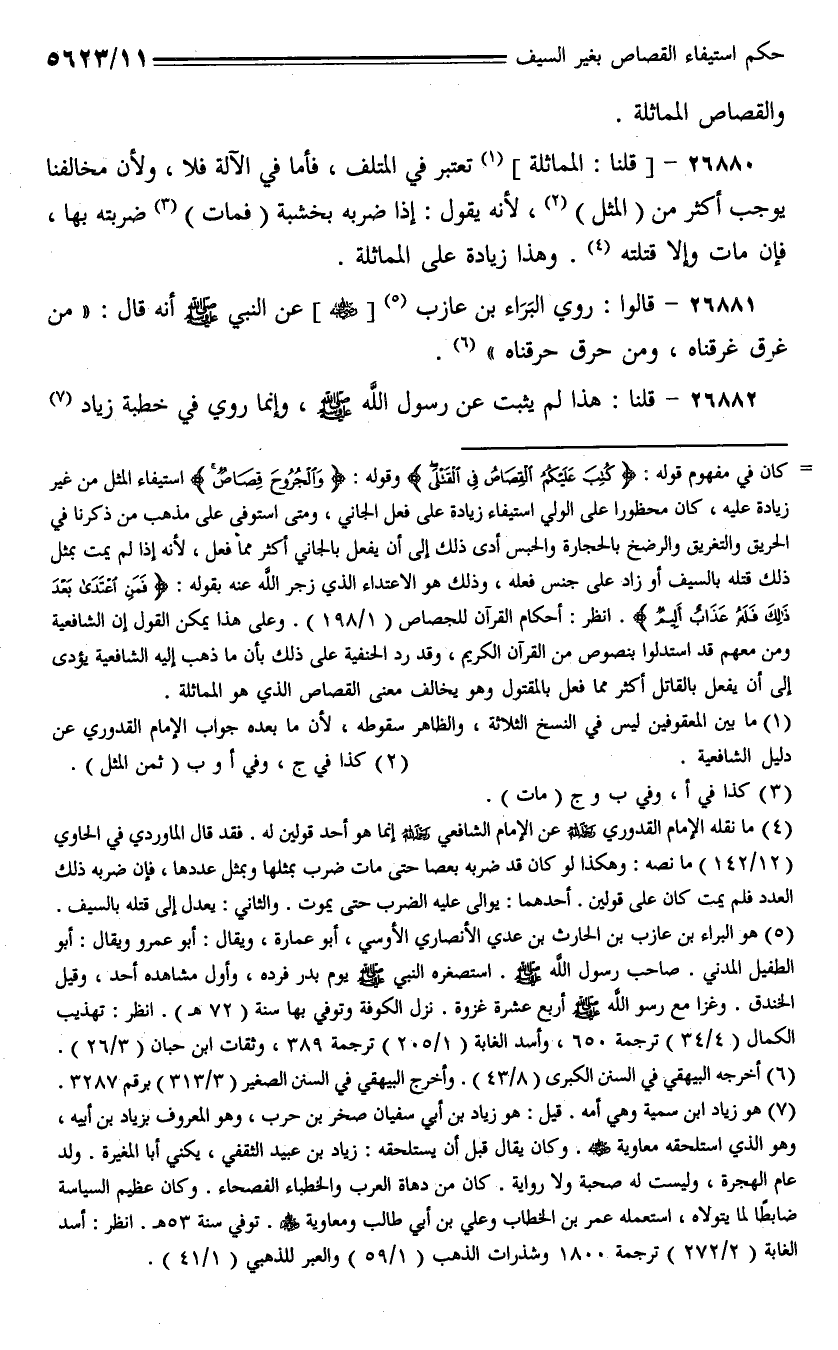 حكم استيفاء القصاص بغير السيف ٥٦٢٣/١١
والقصاص المماثلة .
٢٦٨٨٠ – [ قلنا : المماثلة ] (١) تعتبر في المتلف ، فأما في الآلة فلا ، ولأن مخالفنا
يوجب أكثر من ( المثل ) (٢) ، لأنه يقول : إذا ضربه بخشبة ( فمات ) (٣) ضربته بها ،
فإن مات وإلا قتلته (٤) . وهذا زيادة على المماثلة .
٢٦٨٨١ – قالوا : روي البَرَاء بن عازب (٥) [ ﵁ ] عن النبي ﷺ أنه قال : « من
غرق غرقناه ، ومن حرق حرقناه » (٦) .
٢٦٨٨٢ – قلنا : هذا لم يثبت عن رسول اللَّه ﷺ ، وإنما روي في خطبة زياد (٧)
= كان في مفهوم قوله : ﴿ كُتِبَ عَلَيْكُمُ الْقِصَاصُ فِي الْقَتْلَى ﴾ وقوله : ﴿ وَالْجُرُوحَ قِصَاصٌ ﴾ استيفاء المثل من غير
زيادة عليه ، كان محظورا على الولي استيفاء زيادة على فعل الجاني ، ومتى استوفى على مذهب من ذكرنا في
الحريق والتغريق والرضخ بالحجارة والحبس أدى ذلك إلى أن يفعل بالجاني أكثر مما فعل ، لأنه إذا لم يمت بمثل
ذلك قتله بالسيف أو زاد على جنس فعله ، وذلك هو الاعتداء الذي زجر اللَّه عنه بقوله : ﴿ فَمَنِ اعْتَدَىٰ بَعْدَ
ذَٰلِكَ فَلَهُ عَذَابٌ أَلِيمٌ ﴾ . انظر : أحكام القرآن للجصاص ( ١٩٨/١ ) . وعلى هذا يمكن القول إن الشافعية
ومن معهم قد استدلوا بنصوص من القرآن الكريم ، وقد رد الحنفية على ذلك بأن ما ذهب إليه الشافعية يؤدى
إلى أن يفعل بالقاتل أكثر مما فعل بالمقتول وهو يخالف معنى القصاص الذي هو المماثلة .
(١) ما بين المعقوفين ليس في النسخ الثلاثة ، والظاهر سقوطه ، لأن ما بعده جواب الإمام القدوري عن
دليل الشافعية . (٢) كذا في ج ، وفي أ و ب ( ثمن المثل ) .
(٣) كذا في أ ، وفي ب و ج ( مات ) .
(٤) ما نقله الإمام القدوري ﵀ عن الإمام الشافعي ﵀ إنما هو أحد قولين له . فقد قال الماوردي في الحاوي
( ١٤٢/١٢ ) ما نصه : وهكذا لو كان قد ضربه بعصا حتى مات ضرب بمثلها وبمثل عددها ، فإن ضربه ذلك
العدد فلم يمت كان على قولين . أحدهما : يوالى عليه الضرب حتى يموت . والثاني : يعدل إلى قتله بالسيف .
(٥) هو البراء بن عازب بن الحارث بن عدي الأنصاري الأوسي ، أبو عمارة ، ويقال : أبو عمرو ويقال : أبو
الطفيل المدني . صاحب رسول اللَّه ﷺ . استصغره النبي ﷺ يوم بدر فرده ، وأول مشاهده أحد ، وقيل
الخندق . وغزا مع رسو اللَّه ﷺ أربع عشرة غزوة . نزل الكوفة وتوفي بها سنة ( ٧٢ هـ ) . انظر : تهذيب
الكمال ( ٣٤/٤ ) ترجمة ٦٥٠ ، وأسد الغابة ( ٢٠٥/١ ) ترجمة ٣٨٩ ، وثقات ابن حبان ( ٢٦/٣ ) .
(٦) أخرجه البيهقي في السنن الكبرى ( ٤٣/٨ ) . وأخرج البيهقي في السنن الصغير ( ٣١٣/٣ ) برقم ٣٢٨٧ .
(٧) هو زياد ابن سمية وهي أمه . قيل : هو زياد بن أبي سفيان صخر بن حرب ، وهو المعروف بزياد بن أبيه ،
وهو الذي استلحقه معاوية ﵁ . وكان يقال قبل أن يستلحقه : زياد بن عبيد الثقفي ، يكني أبا المغيرة . ولد
عام الهجرة ، وليست له صحبة ولا رواية . كان من دهاة العرب والخطباء الفصحاء . وكان عظيم السياسة
ضابطًا لما يتولاه ، استعمله عمر بن الخطاب وعلي بن أبي طالب ومعاوية ﵁ . توفي سنة ٥٣هـ . انظر : أسد
الغابة ( ٢٧٢/٢ ) ترجمة ١٨٠٠ وشذرات الذهب ( ٥٩/١ ) والعبر للذهبي ( ٤١/١ ) .